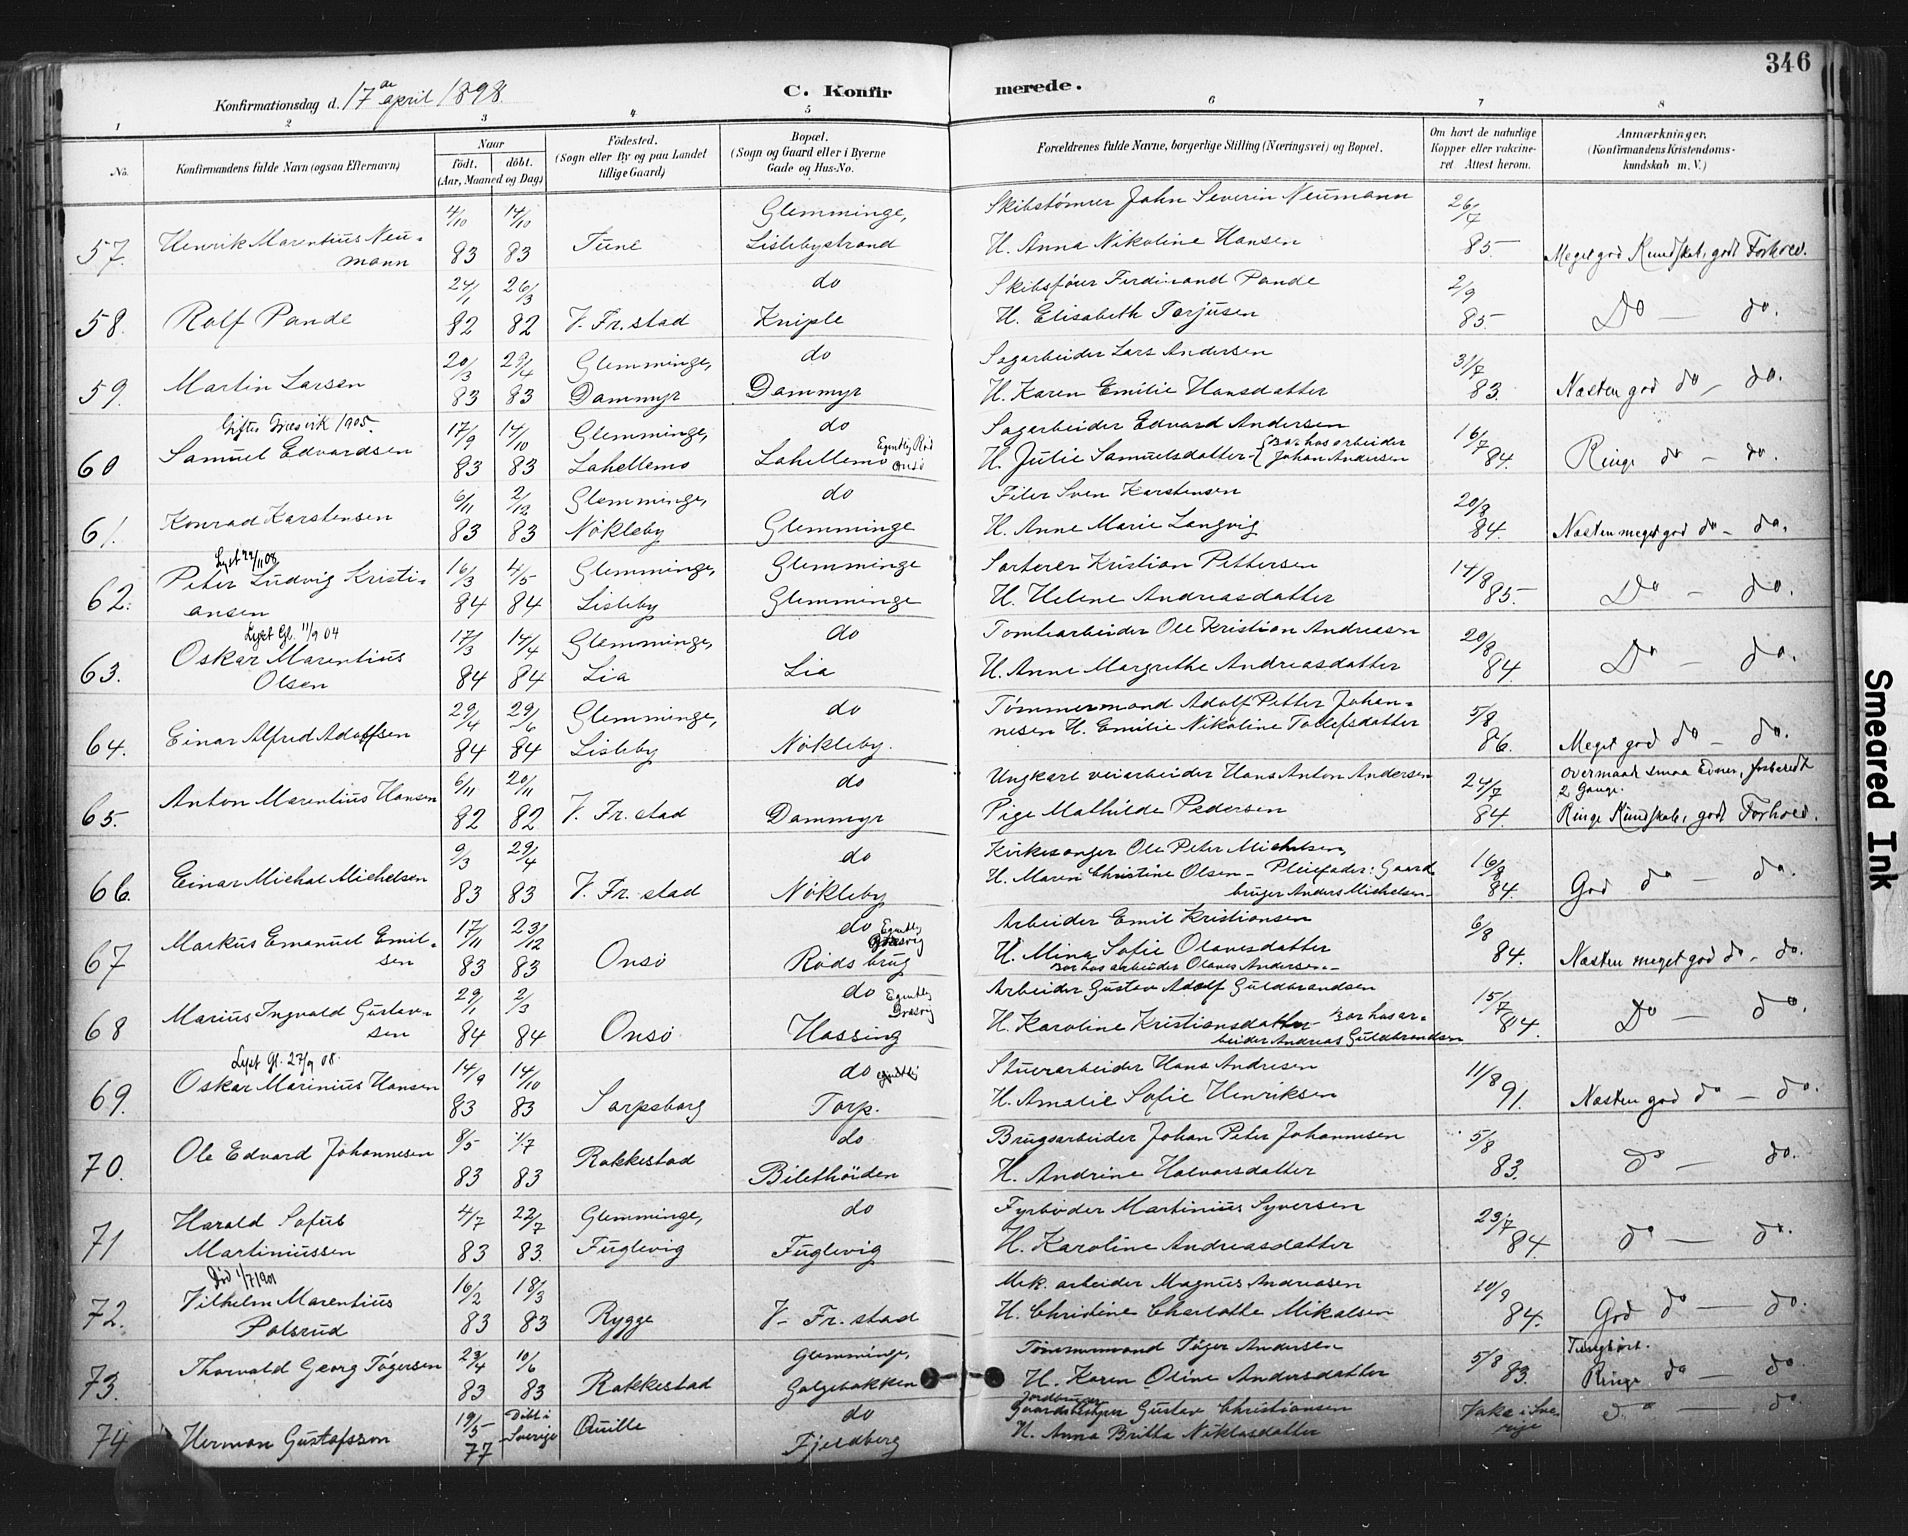 346
Konfirmationsdag d. 17de april 1898. C. Konfirmerede.
1 2 3 4 5 6 7 8
No. Konfirmandens fulde Navn (ogsaa Efternavn) Naar födt. döbt. (Aar, Maaned og Dag) Födested. (Sogn eller By og paa Landet tillige Gaard) Bopæl. (Sogn og Gaard eller i Byerne Gade og Hus-No. Forældrenes fulde Navne, borgerlige Stilling (Næringsvei) og Bopæl. Om havt de naturlige Kopper eller vakcineret Attest herom. Anmærkninger, (Konfirmandens Kristendomskundskab m. V.)
57. Henrik Marentius Neumann 4/10 83 14/10 83 Tune Glemminge, Lislebystrand Skibstømrer John Severin Neumann H. Anna Nikoline Hansen 26/7 85 Meget god Kundskab, godt Forhold.
58. Rolf Pande 24/1 82 26/3 82 V. Fr.stad do Kniple Skibsfører Ferdinand Pande H. Elisabeth Torjusen 2/9 85 Do — do.
59. Martin Larsen 20/3 83 29/4 83 Glemminge, Dammyr do Dammyr Sagarbeider Lars Andersen H. Karen Emilie Hansdatter 31/7 83. Næsten god do — do.
Giftes Græsvik 1905.
60 Samuel Edvardsen 17/9 83 14/10 83 Glemminge, Lahellemo do Lahellemo Egentlig Rød Onsö Sagarbeider Edvard Andersen H. Julie Samuelsdatter - {Bor hos arbeider Johan Andersen 16/7 84. Ringe do — do.
61. Konrad Karstensen 6/11 83 2/12 83 Glemminge, Nökleby do Glemminge Filer Sven Karstensen H. Anne Marie Langvig 20/8 84. Næsten meget god do — do.
Lyst 22/11 08
62. Peter Ludvig Kristiansen 16/3 84 4/5 84 Glemminge, Lisleby Glemminge Glemminge Sorterer Kristian Pettersen H. Helene Andreasdatter 14/8 85. Do — do.
Lyst Gl. 11/9 04
63. Oskar Marentius Olsen 17/3 84 14/4 84 Glemminge, Lia do Lia Tomtearbeider Ole Kristian Andreasen H. Anne Margrethe Andreasdatter 20/8 84 Do — do.
64. Einar Alfred Adolfsen 29/4 84 29/6 84 Glemminge, Lisleby do Nökleby. Tømmermand Adolf Petter Johannesen H. Emilie Nikoline Tollefsdatter 5/8 86. Meget god do — do.
65. Anton Marentius Hansen 6/11 82 20/11 82 V. Fr.stad do Dammyr Ungkarl veiarbeider Hans Anton Andersen Pige Mathilde Pedersen 24/7 84. overmaade smaa Evner, forberedt 2 Gange. Ringe Kundskab, godt Forhold.
66. Einar Michal Michelsen 9/3 83 29/4 83 V. Fr. stad do Nökleby Kirkesanger Ole Peter Michelsen, H. Maren Christine Olsen - Pleiefader: Gaardbruger Anders Michelsen 16/8 84. God do — do.
67 Markus Emanuel Emilsen 17/11 83 23/12 83 Onsö do Egentlig Græsvig Röds brug Arbeider Emil Kristiansen H. Mina Sofie Olavesdatter Bor hos arbeider Olaves Andersen. 6/8 84. Næsten meget god do - do.
68 Marius Ingvald Gustavsen 29/1 84 2/3 84 Onsö do Egentlig Græsvig Hassing Arbeider Gustav Adolf Guldbrandsen H. Karoline Kristiansdatter - Bor hos arbeider Andreas Guldbrandsen 15/7 84. Do — do
Lyst Gl. 27/9 08.
69. Oskar Marinius Hansen 14/9 83 14/10 83 Sarpsborg do Egentlig Torp. Stuerarbeider Hans Andresen H. Amalie Sofie Henriksen 11/8 91. Næsten god do — do.
70. Ole Edvard Johannesen 8/5 83 1/7 83 Rakkestad do Bilethöiden Brugsarbeider Johan Peter Johannesen H. Andrine Halvorsdatter 5/8 83. do — do.
71 Harald Sofus Martiniussen 4/7 83 22/7 83. Glemminge, Fuglevig do Fuglevig Fyrböder Martinius Syversen H. Karoline Andreasdatter 23/7 84. do — do.
Död 1/7 1901
72. Vilhelm Marentius Polsrud 16/2 83 18/3 83 Rygge V. Fr. stad Mek. arbeider Magnus Andreasen H. Christine Charlotte Mikalsen 10/9 84. God do — do.
73. Thorvald Georg Tögersen 23/4 83 10/6 83 Rakkestad Glemminge, Galgebakken Tömmermand Töger Andersen H. Karen Oline Andersdatter 5/8 83. Tunghört. Ringe do — do.
74. Herman Gustafsson 19/5 77 Döbt i Sverige Quille do Fjeldberg Jordbruger Gustav Christiansen H. Anna Britta Niklasdatter Vakc i Sverige do — do.
Smeared Ink